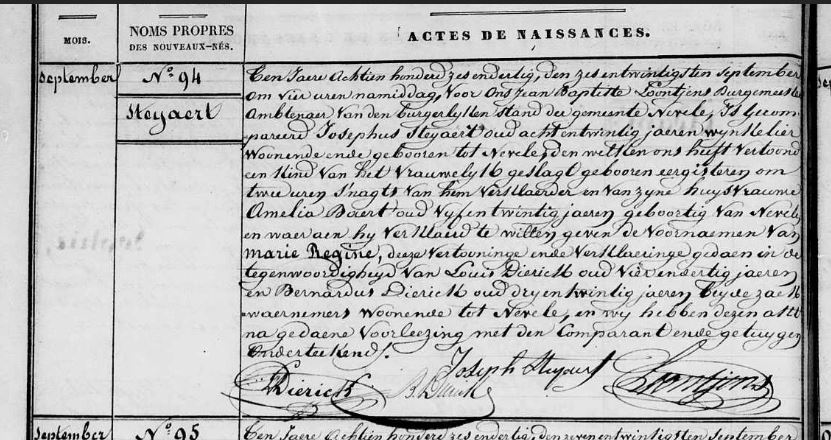 MOIS.
NOMS PROPRES
DES NOUVEAUX-NÉS.
ACTES DE NAISSANCES.
September
Nº 94
Steyaert
Een Jaere Achtien honderd zes endertig, den zes entwintigsten September
om vier uren namiddag, Voor Ons Jean Baptiste Loontjens Burgemeester
Ambtenaer Van den burgerlyken stand der gemeente Nevele, Is Gecom
pareerd Josephus Steyaert oud acht entwintig jaeren wynkelier
Woonende ende gebooren tot Nevele, den welken ons heeft Vertoond
een Kind Van het Vrauwelyk geslagt gebooren eergisteren om
twee uren s'nagts Van hem Verklaerder en Van zyne huysvrauwe
Amelia Baert oud Vyf entwintig jaeren geboortig Van Nevele
en waeraen hy Verklaerd te willen geven de Voornaemen Van
marie Regine, deeze Vertooninge ende Verklaeringe gedaen in de
tegenwoordigheyd Van Louis Dierick oud Vier endertig jaeren
en Bernardus Dierick oud dry entwintig jaeren beyde zaek
waernemers Woonende tot Nevele, en wy hebben dezen akt
na gedaene Voorleezing met den Comparant ende getuygen
Onderteekend.
Joseph Steyaert
Dierick
B. Dierick
Loontjens
September
Nº 95
Een Jaere Achtien honderd zes endertig, den zeven entwintigsten September